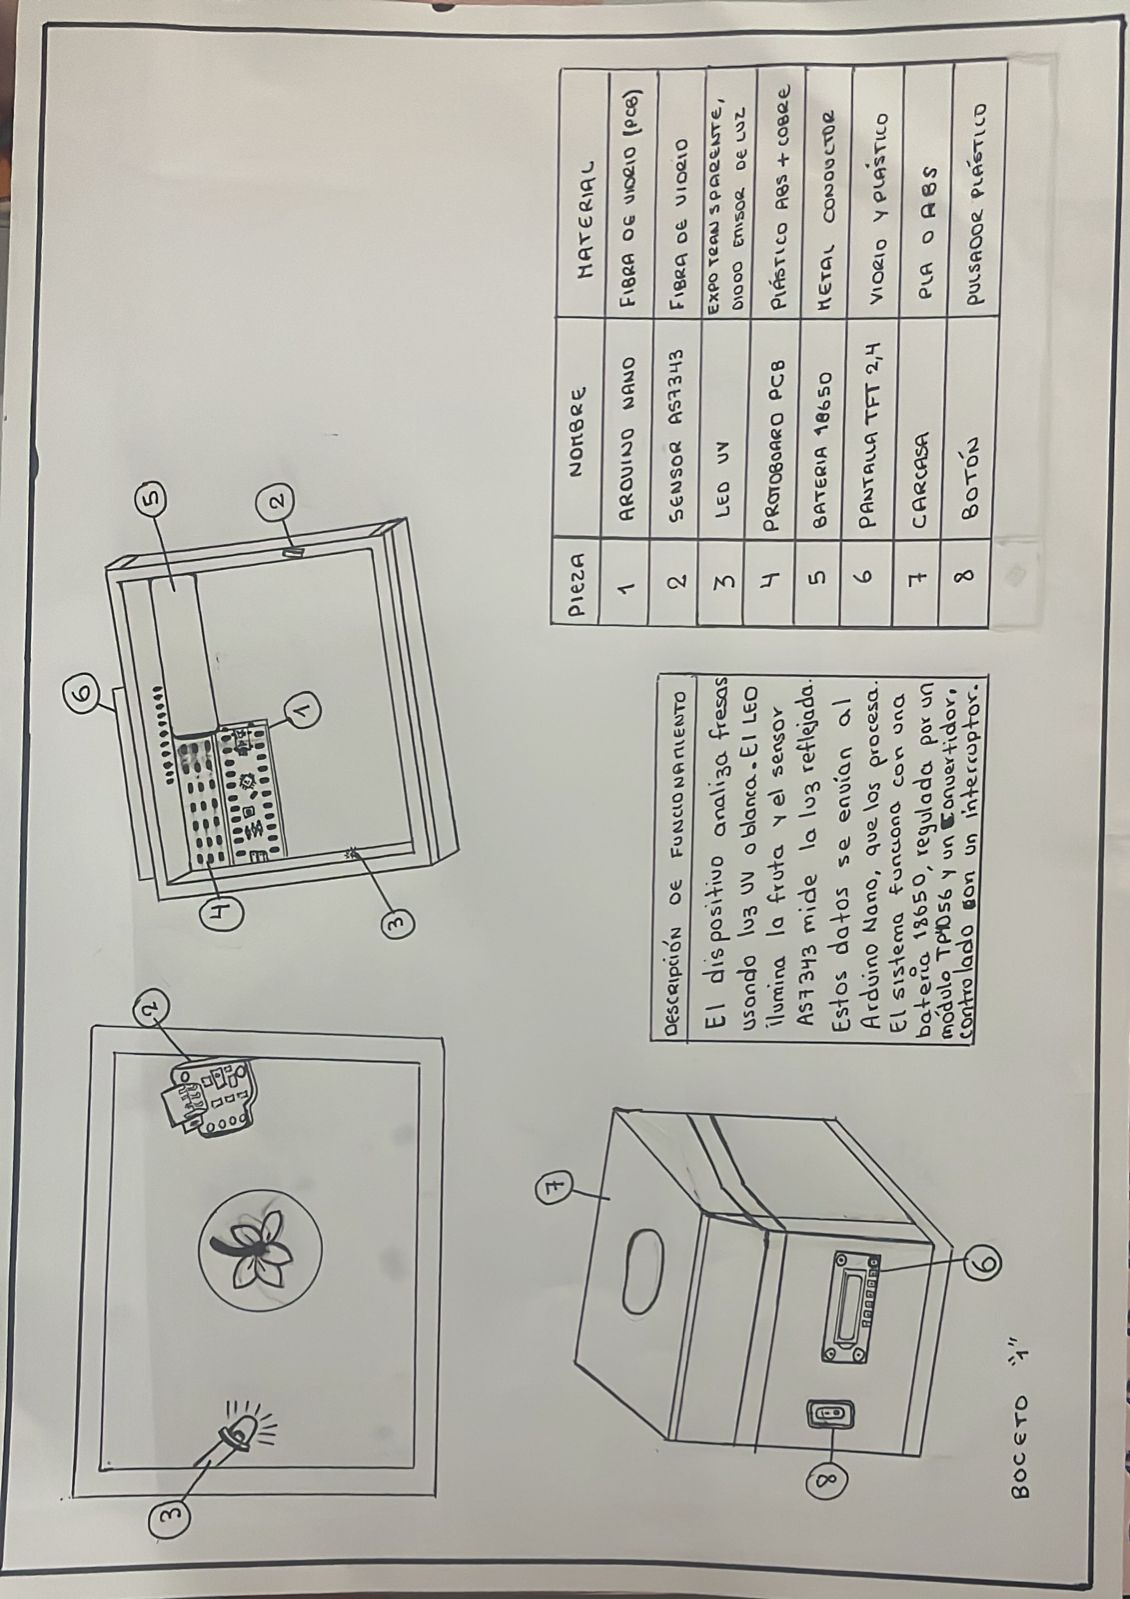 2
3
6
5
2
1
4
3
7
6
8
DESCRIPCIÓN DE FUNCIONAMIENTO
El dispositivo analiza fresas
usando luz UV o blanca. El LED
ilumina la fruta y el sensor
AS7343 mide la luz reflejada.
Estos datos se envían al
Arduino Nano, que los procesa.
El sistema funciona con una
batería 18650, regulada por un
módulo TP4056 y un convertidor,
controlado con un interruptor.
PIEZA NOMBRE MATERIAL
1 ARDUINO NANO FIBRA DE VIDRIO (PCB)
2 SENSOR AS7343 FIBRA DE VIDRIO
3 LED UV EXPO TRANSPARENTE,
DIODO EMISOR DE LUZ
4 PROTOBOARD PCB PLÁSTICO ABS + COBRE
5 BATERIA 18650 METAL CONDUCTOR
6 PANTALLA TFT 2,4 VIDRIO Y PLÁSTICO
7 CARCASA PLA O ABS
8 BOTÓN PULSADOR PLÁSTICO
BOCETO "1"